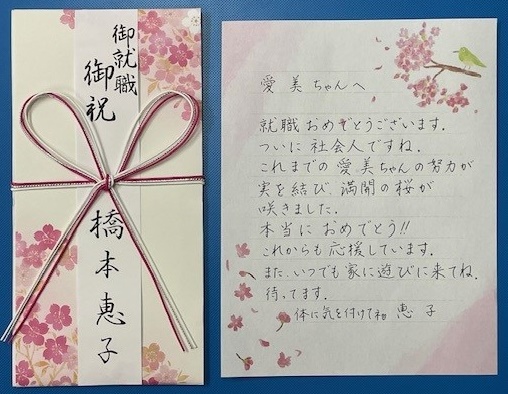 御就職
御祝
橋本恵子
愛美ちゃんへ
就職おめでとうございます。
ついに社会人ですね。
これまでの愛美ちゃんの努力が
実を結び、満開の桜が
咲きました。
本当におめでとう!!
これからも応援しています。
また、いつでも家に遊びに来てね。
待ってます。
体に気を付けて 恵子